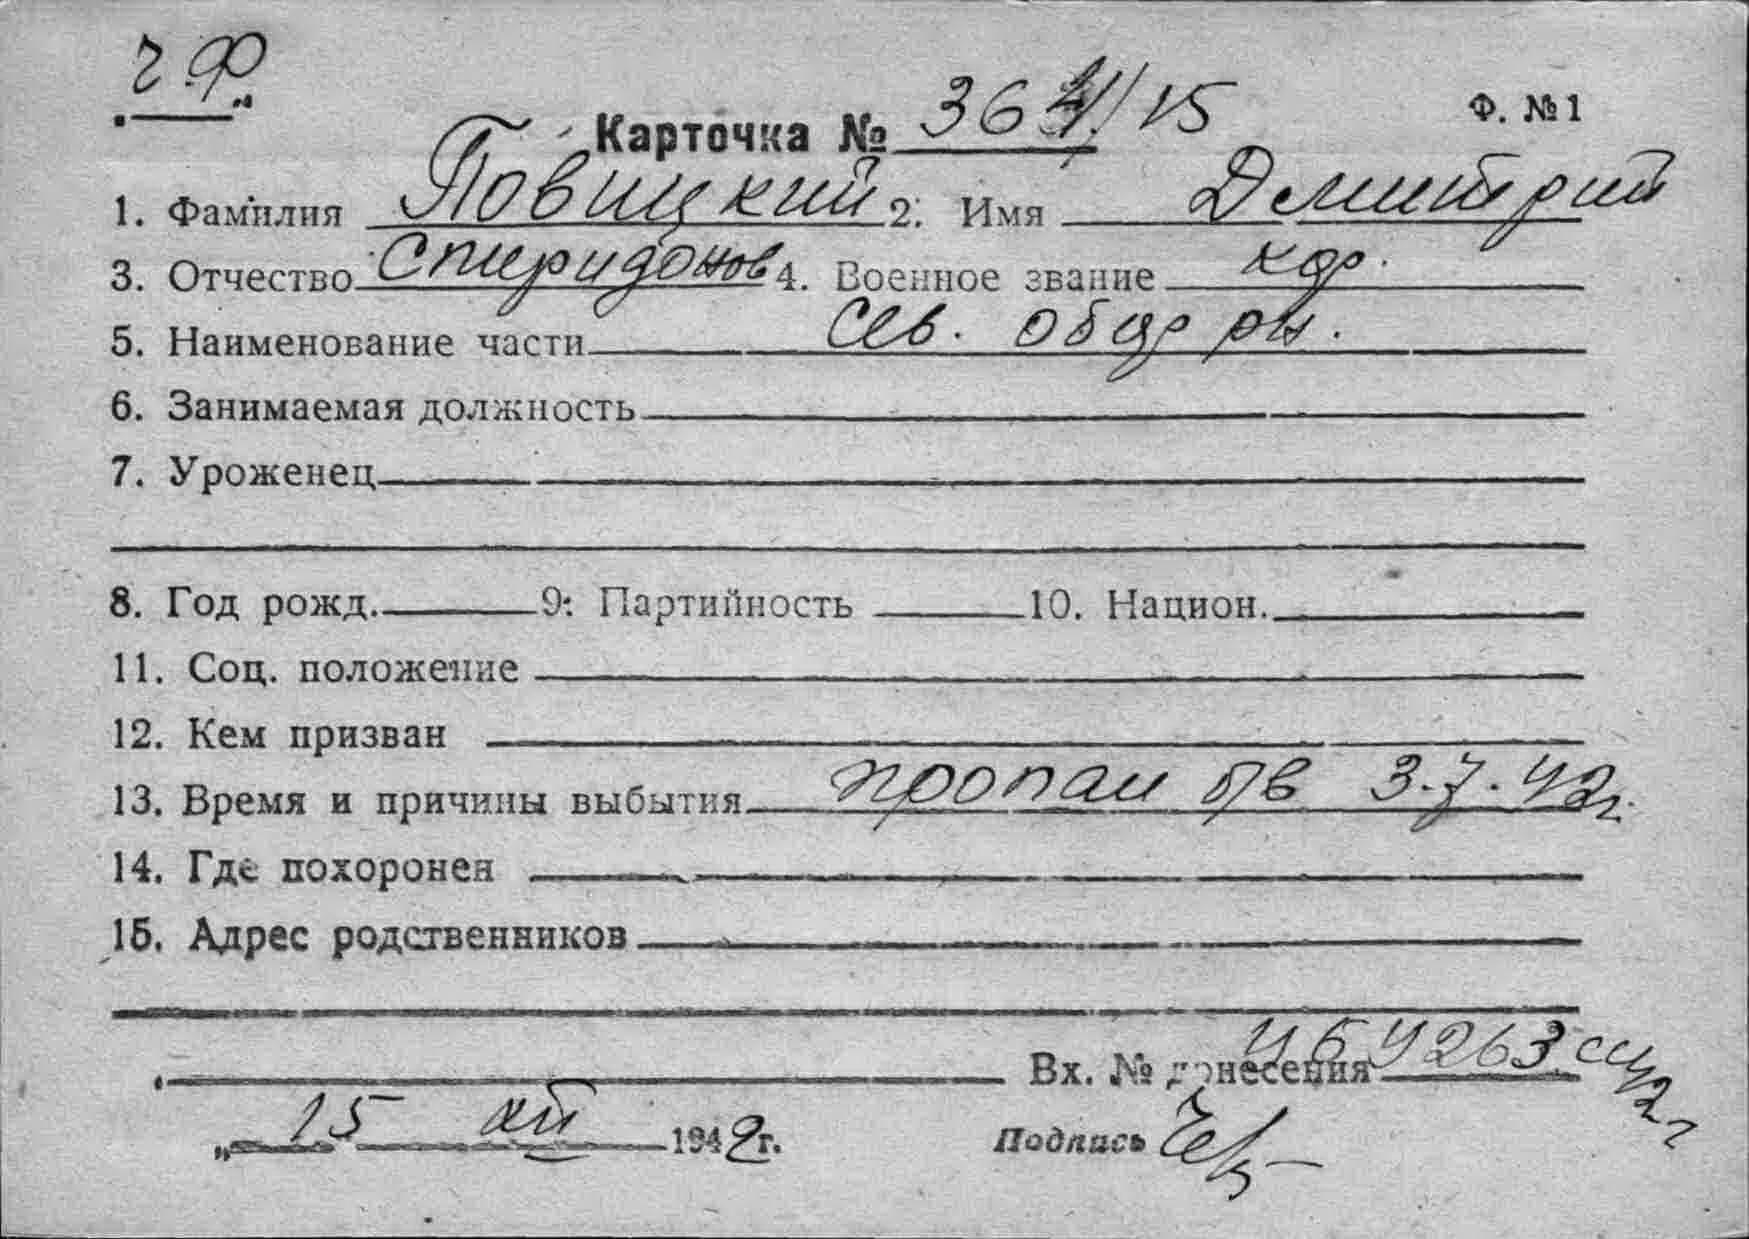 ЧФ
Ф. №1
Карточка № 364/15
1. Фамилия Повицкий 2. Имя Дмитрий
3. Отчество Спиридонов 4. Военное звание кдр.
5. Наименование части Сев. обор рн.
6. Занимаемая должность
7. Уроженец
8. Год рожд. 9. Партийность 10. Национ.
11. Соц. положение
12. Кем призван
13. Время и причины выбытия пропал б/в 3.7.42г.
14. Где похоронен
15. Адрес родственников
Вх. № донесения
„15 XII 1942г.
Подпись